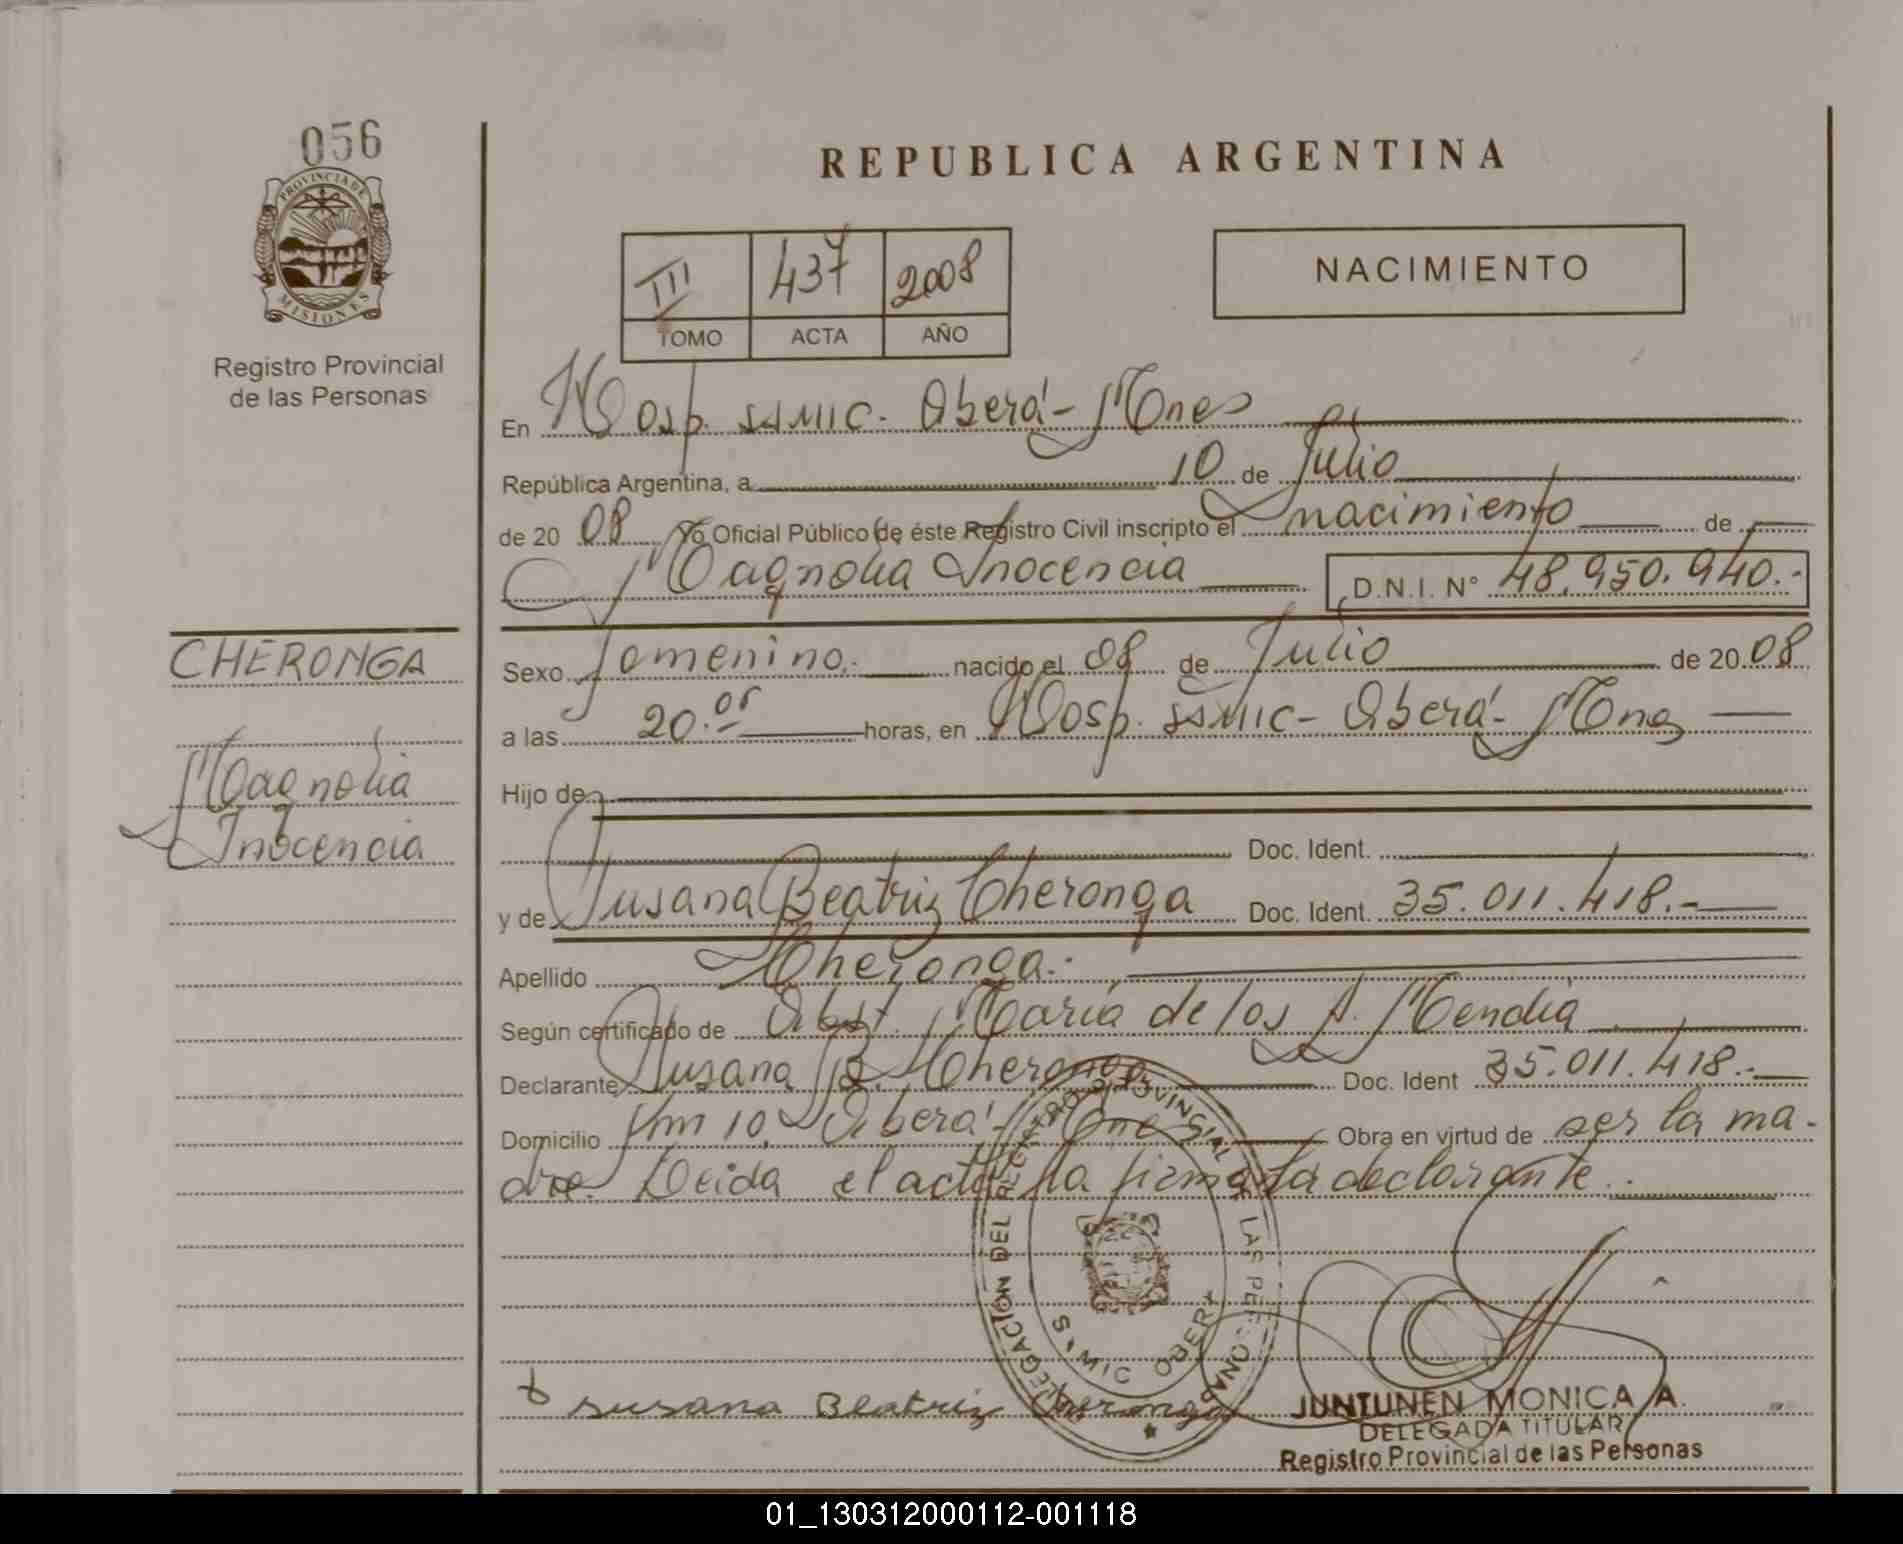 056
PROVINCIA DE
MISIONES
Registro Provincial
de las Personas
REPUBLICA ARGENTINA
III 437 2008
TOMO ACTA AÑO
NACIMIENTO
En Hosp. SAMIC - Oberá - Mnes
República Argentina, a 10 de Julio
de 20 08 Yo Oficial Público de éste Registro Civil inscripto el nacimiento de
Magnolia Inocencia D.N.I. N° 48.950.940.-
CHERONGA
Magnolia
Inocencia
Sexo femenino.- nacido el 08 de Julio de 20 08
a las 20.05 horas, en Hosp. SAMIC - Oberá - Mnes
Hijo de
Doc. Ident.
y de Susana Beatriz Cheronga Doc. Ident. 35.011.418.-
Apellido Cheronga.-
Según certificado de Obst. María de los A. Mendia
Declarante Susana B. Cheronga Doc. Ident 35.011.418.-
Domicilio Km 10, Oberá - Mnes Obra en virtud de ser la ma-
dre. Leida el acta la firma la declarante.-
DELEGACIÓN DEL REGISTRO PROVINCIAL DE LAS PERSONAS
SAMIC OBERA
Susana Beatriz Cheronga
JUNTUNEN MONICA A.
DELEGADA TITULAR
Registro Provincial de las Personas
01_130312000112-001118